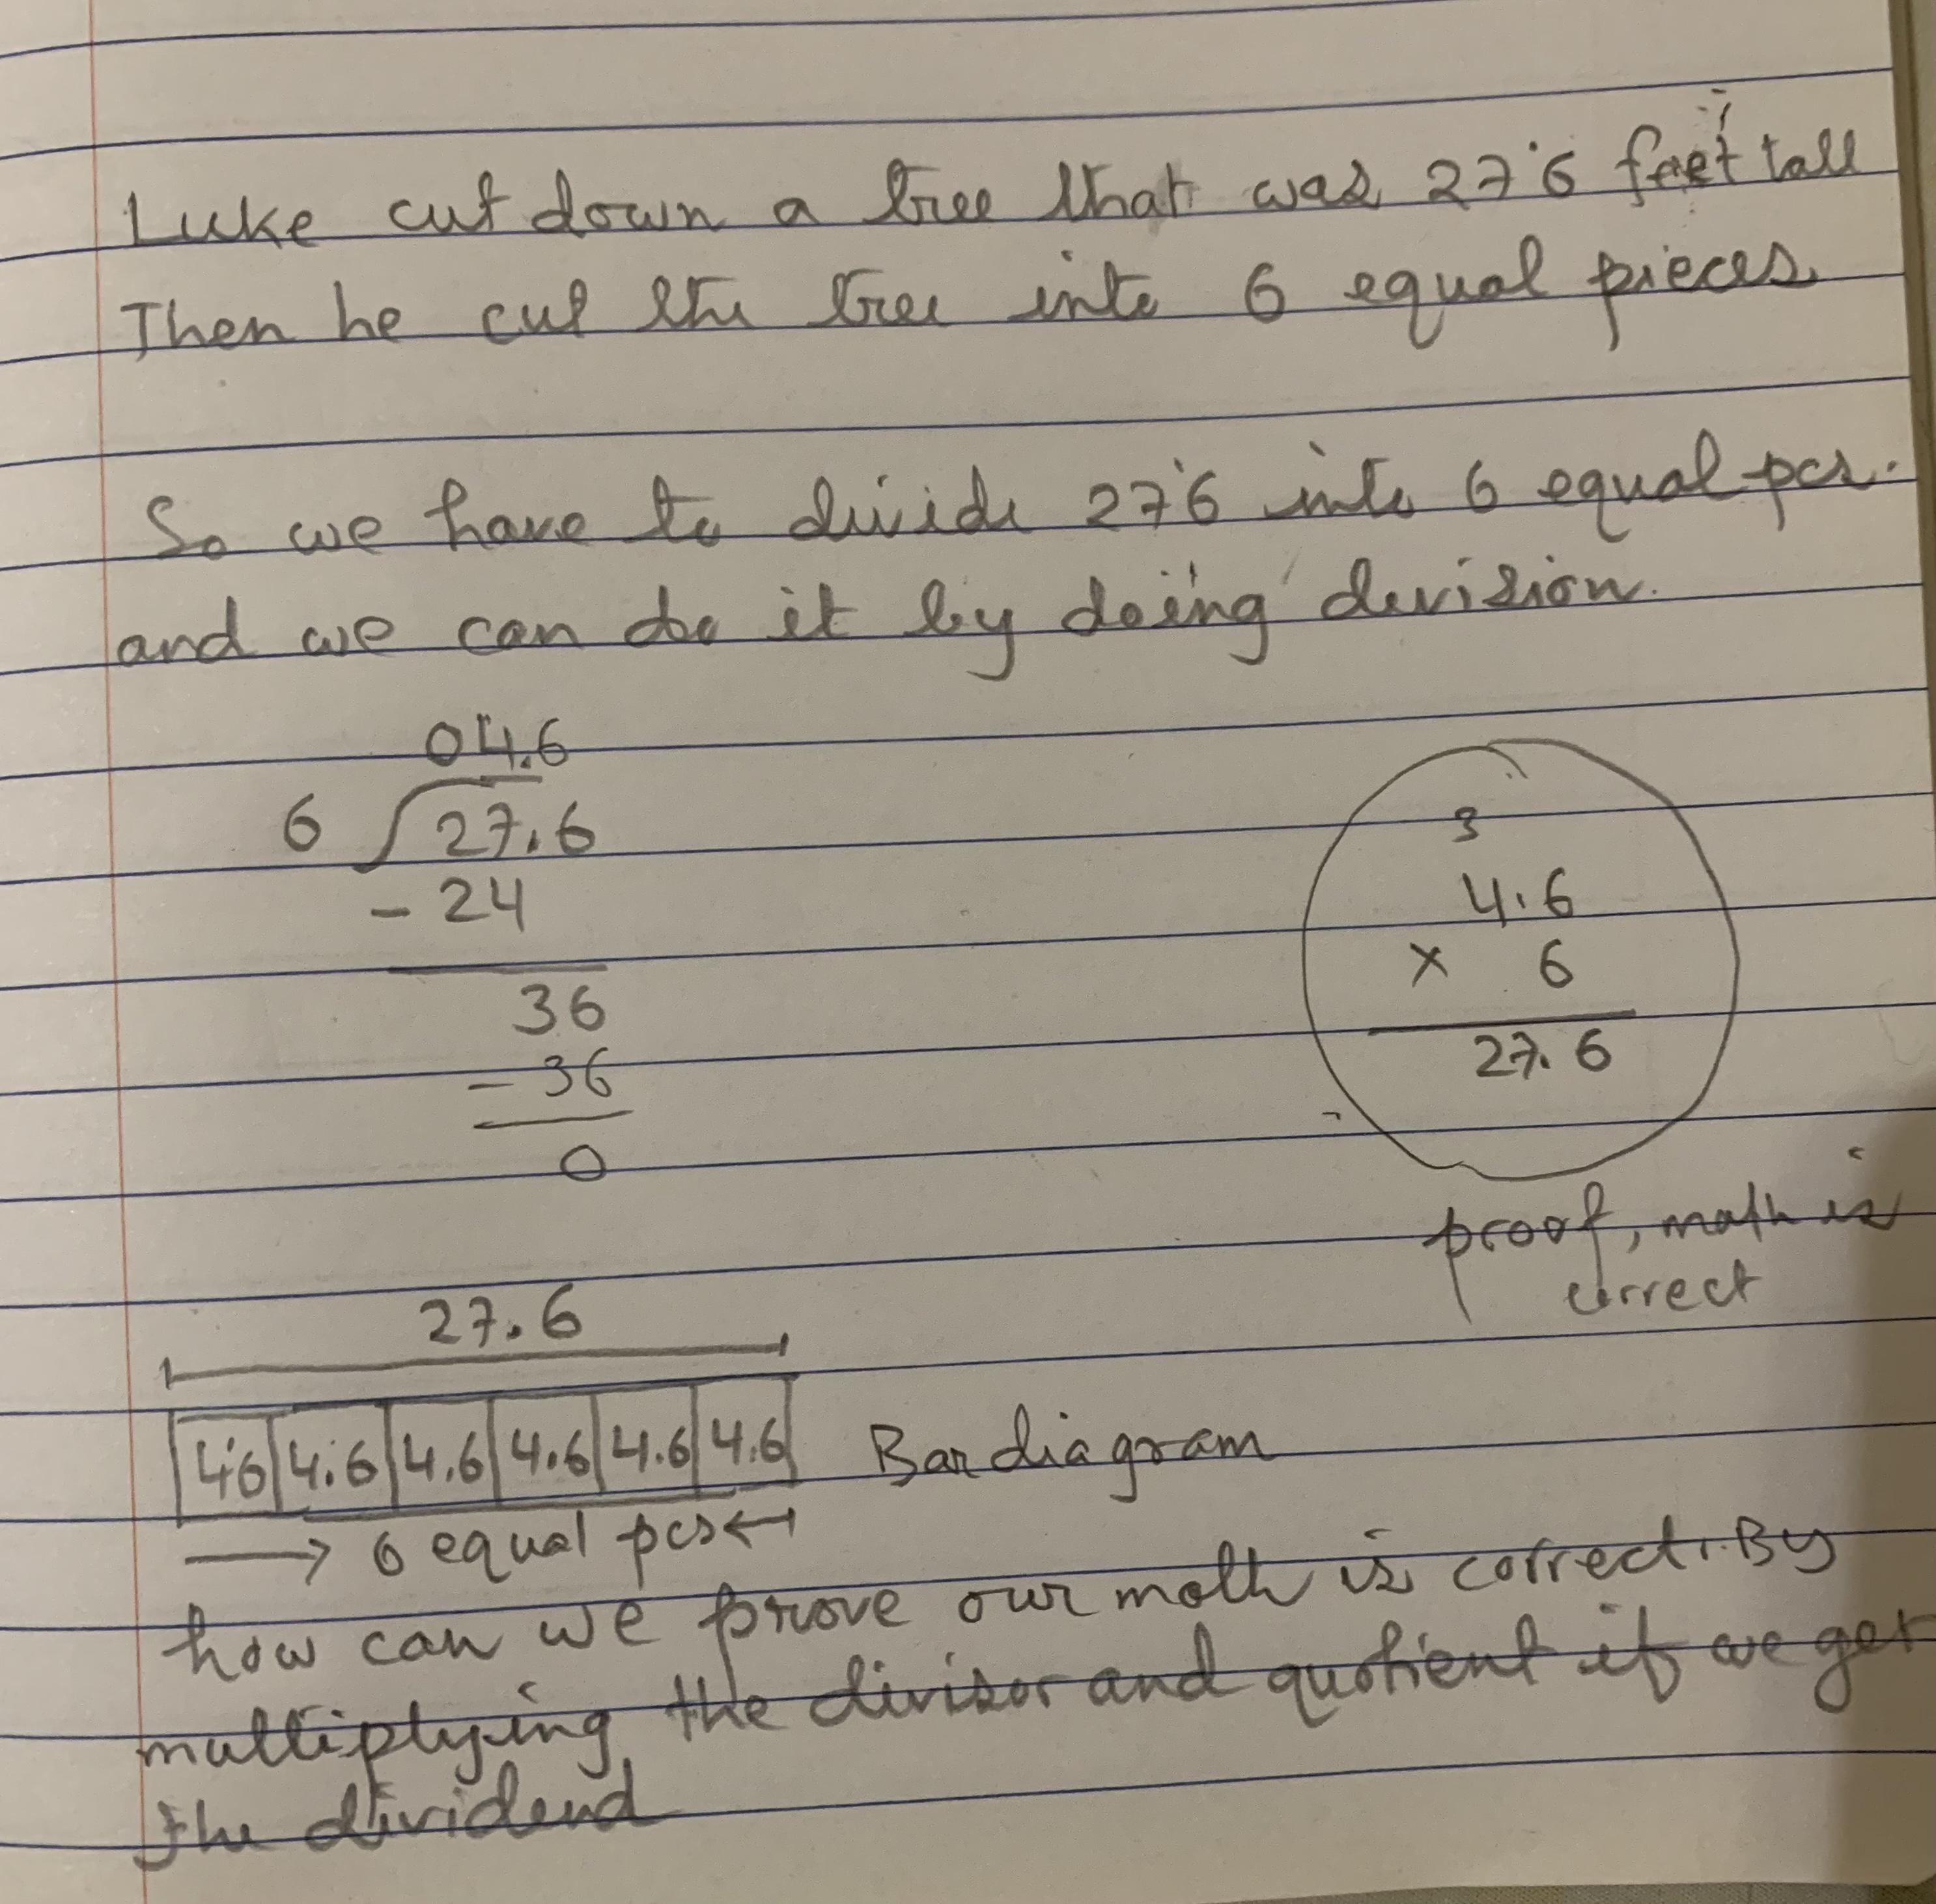 Luke cut down a tree that was 27.6 feet tall
Then he cut the tree into 6 equal pieces.
So we have to divide 27.6 into 6 equal pcs.
and we can do it by doing division.
04.6
6 27.6
- 24
36
- 36
0
3
4.6
× 6
27.6
proof, math is
correct
27.6
4.6 4.6 4.6 4.6 4.6 4.6 Bar diagram
→ 6 equal pcs ←
how can we prove our math is correct. By
multiplying the divisor and quotient if we get
the dividend